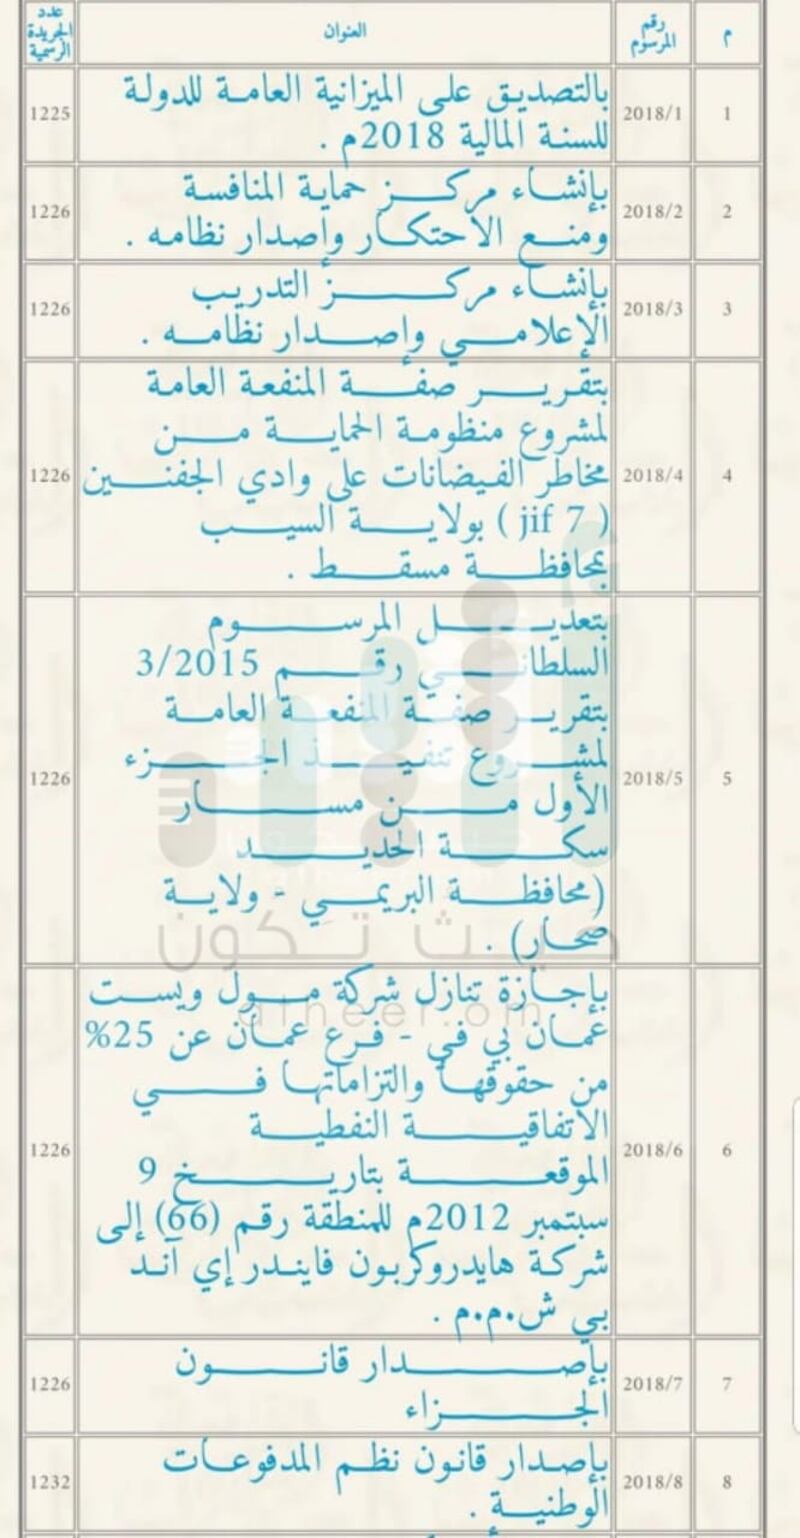 م
رقم
المرسوم
العنوان
عدد
الجريدة
الرسمية
1
2018/1
بالتصديق على الميزانية العامة للدولة
للسنة المالية 2018م .
1225
2
2018/2
بإنشاء مركز حماية المنافسة
ومنع الاحتكار وإصدار نظامه .
1226
3
2018/3
بإنشاء مركز التدريب
الإعلامي وإصدار نظامه .
1226
4
2018/4
بتقرير صفة المنفعة العامة
لمشروع منظومة الحماية من
مخاطر الفيضانات على وادي الجفنين
( jif 7 ) بولاية السيب
بمحافظة مسقط .
1226
5
2018/5
بتعديل المرسوم
السلطاني رقم 3/2015
بتقرير صفة المنفعة العامة
لمشروع تنفيذ الجزء
الأول من مسار
سكة الحديد
(محافظة البريمي - ولاية
صحار) .
1226
حيث تكون
atheer.om
6
2018/6
بإجازة تنازل شركة مول ويست
عمان بي في - فرع عمان عن 25%
من حقوقها والتزاماتها في
الاتفاقية النفطية
الموقعة بتاريخ 9
سبتمبر 2012م للمنطقة رقم (66) إلى
شركة هايدروكربون فايندر إي آند
بي ش.م.م .
1226
7
2018/7
بإصدار قانون
الجزاء
1226
8
2018/8
بإصدار قانون نظم المدفوعات
الوطنية .
1232